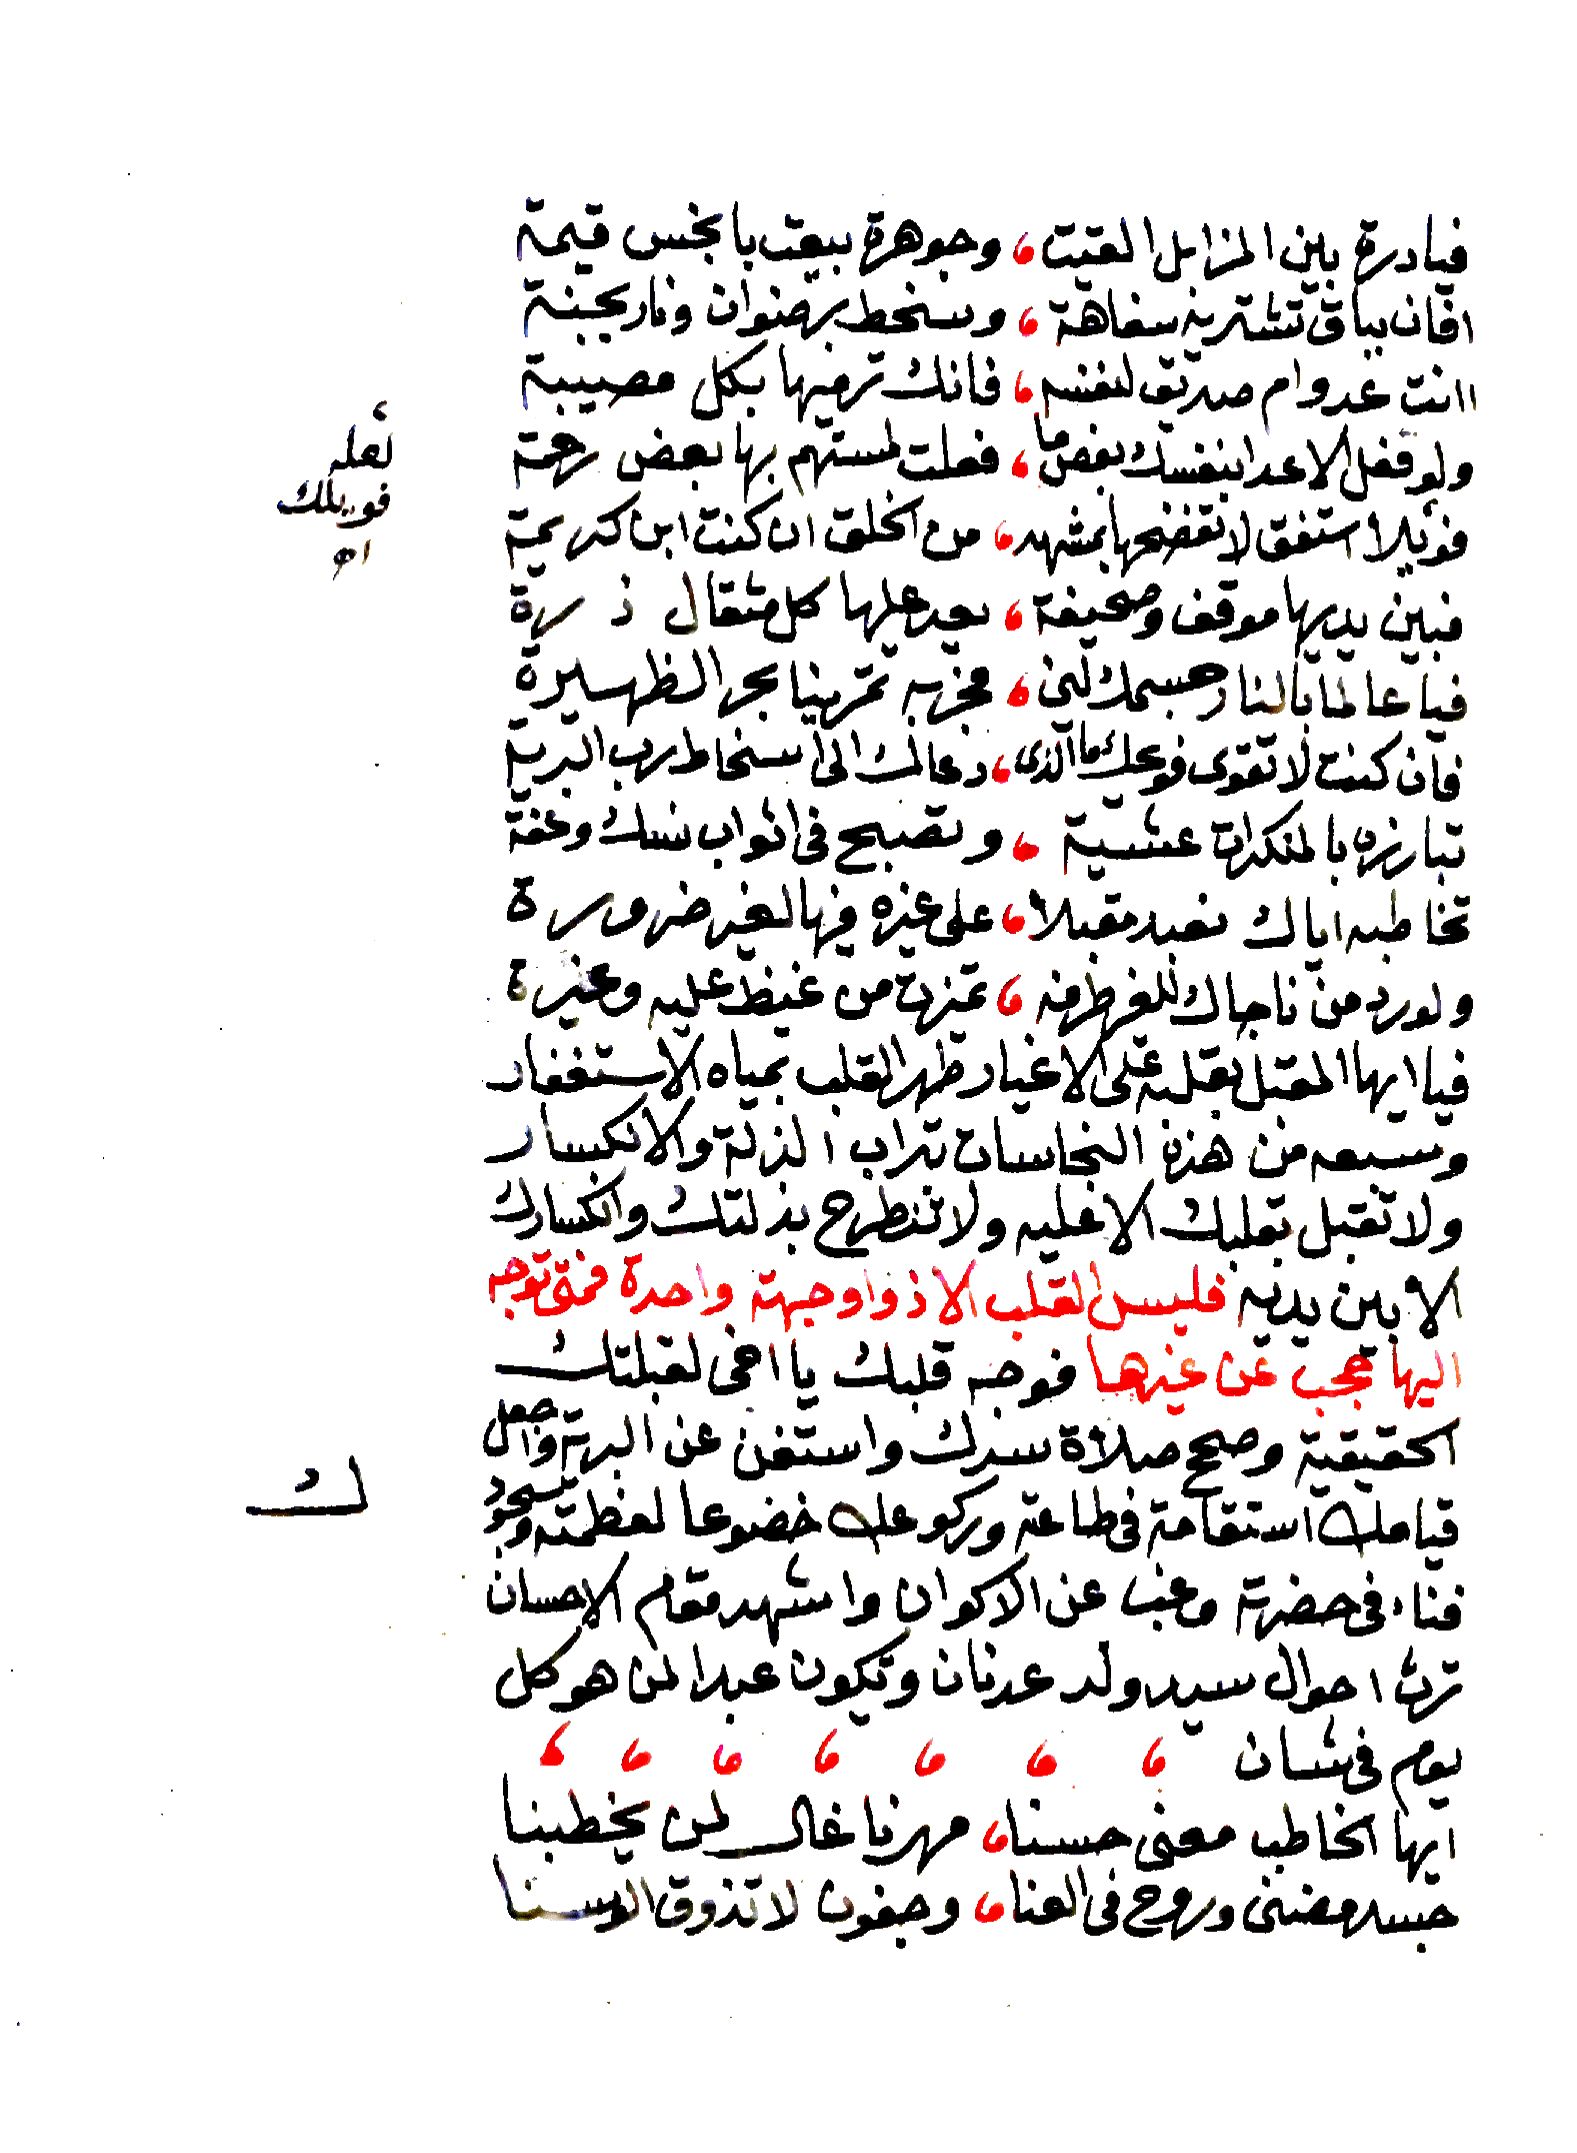 فيادرة بين المزابل القيت ، وجوهرة بيعت بابخس قيمة
افان بباق تشتريه سفاهة ، وسخط برضوان ونار بجنة
اانت عدو ام صديق لنفسه ، فانك ترميها بكل مصيبة
ولو فعل الاعدا بنفسك بعض ما ، فعلت لمستهم بها بعض رحمة
فويلا استفق لا تفضحها بمشهد ، من الخلق ان كنت ابن كريمة
فبين يديها موقف وصحيفة ، يعد عليها كل مثقال ذرة
فيا عالما بالنار جسمك لين ، فجربه تمرينا بحر الظهيرة
فان كنت لا تقوى فويحك ما الذى ، دعاك الى اسخاط رب البرية
تبارزه بالمنكرات عشية ، وتصبح فى اثواب نسك وعفة
تخاطبه اياك نعبد مقبلا ، على غيره فيها لغير ضرورة
ولو رد من ناجاك للغير طرفه ، تميزت من غيظ عليه وغيرة
فيا ايها المقبل بقلبه على الاغيار طهر القلب بمياه الاستغفار
وسبعه من هذه النجاسات بتراب الذلة والانكسار
ولا تقبل بقلبك الا عليه ولا تنطرح بذلتك وانكسارك
الا بين يديه فليس القلب الا ذوا وجهة واحدة فمتى توجه
اليها حجب عن غيرها فوجه قلبك يا اخى لقبلتك
الحقيقية وصحح صلاة سرك واستغن عن البرية واجعل
قيامك استقامة فى طاعة وركوعك خضوعا لعظمته وسجود
فناء فى حضرته وغب عن الاكوان واشهد مقام الاحسان
ترث احوال سيد ولد عدنان وتكون عبدا لمن هو كل
يوم فى شان ، ، ، ، ، ، ،
ايها الخاطب معنى حسنا ، مهرنا غال لمن يخطبنا
جسد مضنى وروح فى العنا ، وجفون لا تذوق الوسنا
لعله
فويلك
اه
ك